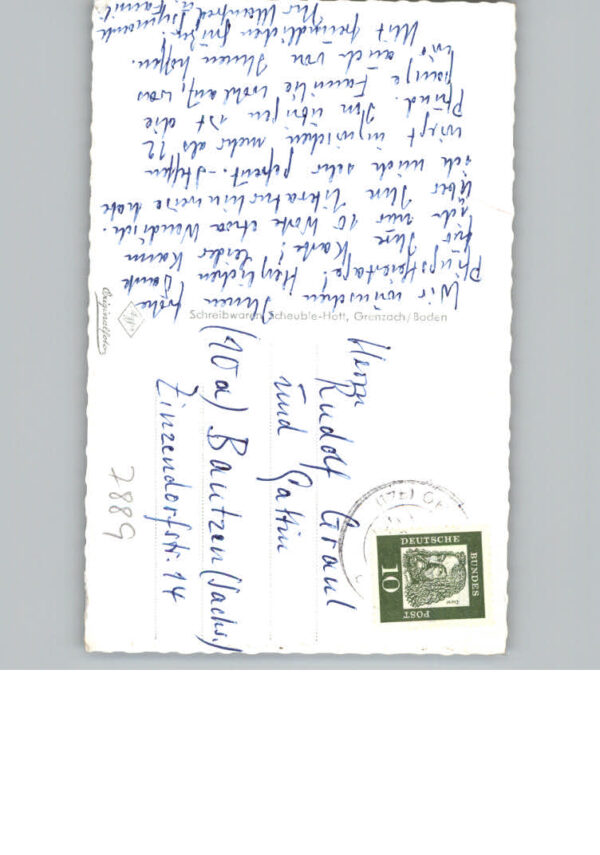 Wir wünschen Ihnen frohe
Pfingstfeiertage! Herzlichen Dank
für Ihre Karte! Leider kann
ich nur 10 Worte etwa Wendisch.
Über Ihre Literaturhinweise habe
ich mich sehr gefreut. - Steffen
wiegt inzwischen mehr als 12
Pfund. Im übrigen ist die
ganze Familie wohlauf, was
wir auch von Ihnen hoffen.
Mit freundlichen Grüßen
Ihr Manfred u. Famil.
Originalfoto
Schreibwaren Scheuble-Hott, Grenzach/Baden
Herrn
Rudolf Graul
und Gattin
(10a) Bautzen (Sachs.)
Zinzendorfstr. 14
7889
DEUTSCHE
BUNDES
POST
10